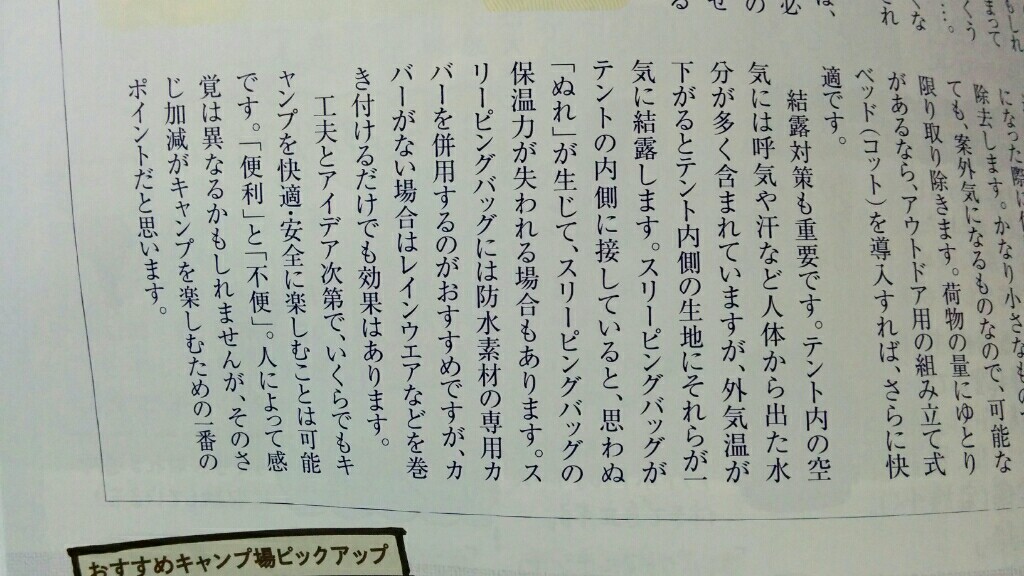 まって
くう
…。
くな
され
の必
は、
せ
る
になった際に
除去します。かなり小さなもの
ても、案外気になるものなので、可能な
限り取り除きます。荷物の量にゆとり
があるなら、アウトドア用の組み立て式
ベッド（コット）を導入すれば、さらに快
適です。
結露対策も重要です。テント内の空
気には呼気や汗など人体から出た水
分が多く含まれていますが、外気温が
下がるとテント内側の生地にそれらが一
気に結露します。スリーピングバッグが
テントの内側に接していると、思わぬ
「ぬれ」が生じて、スリーピングバッグの
保温力が失われる場合もあります。ス
リーピングバッグには防水素材の専用カ
バーを併用するのがおすすめですが、カ
バーがない場合はレインウエアなどを巻
き付けるだけでも効果はあります。
工夫とアイデア次第で、いくらでもキ
ャンプを快適・安全に楽しむことは可能
です。「便利」と「不便」。人によって感
覚は異なるかもしれませんが、そのさ
じ加減がキャンプを楽しむための一番の
ポイントだと思います。
おすすめキャンプ場ピックアップ